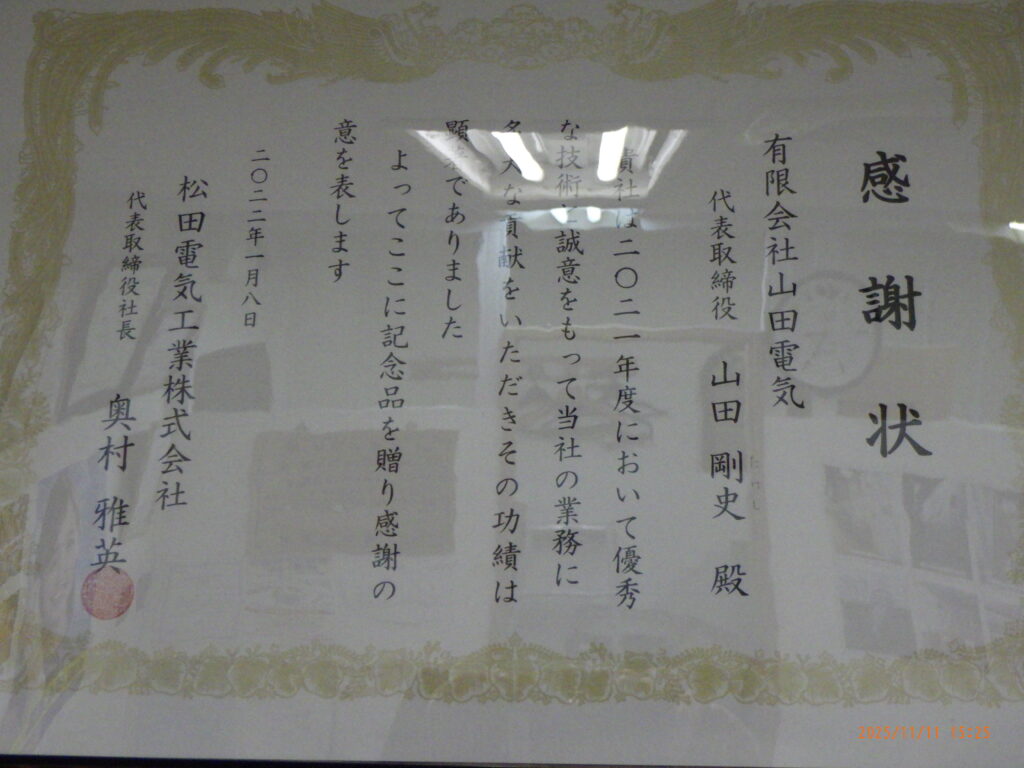 感謝状
有限会社山田電気
代表取締役 山田 剛史 殿
貴社は二〇二一年度において優秀
な技術と誠意をもって当社の業務に
多大な貢献をいただきその功績は
顕著でありました
よってここに記念品を贈り感謝の
意を表します
二〇二二年一月八日
松田電気工業株式会社
代表取締役社長 奥村 雅英
2025/11/11 15:25